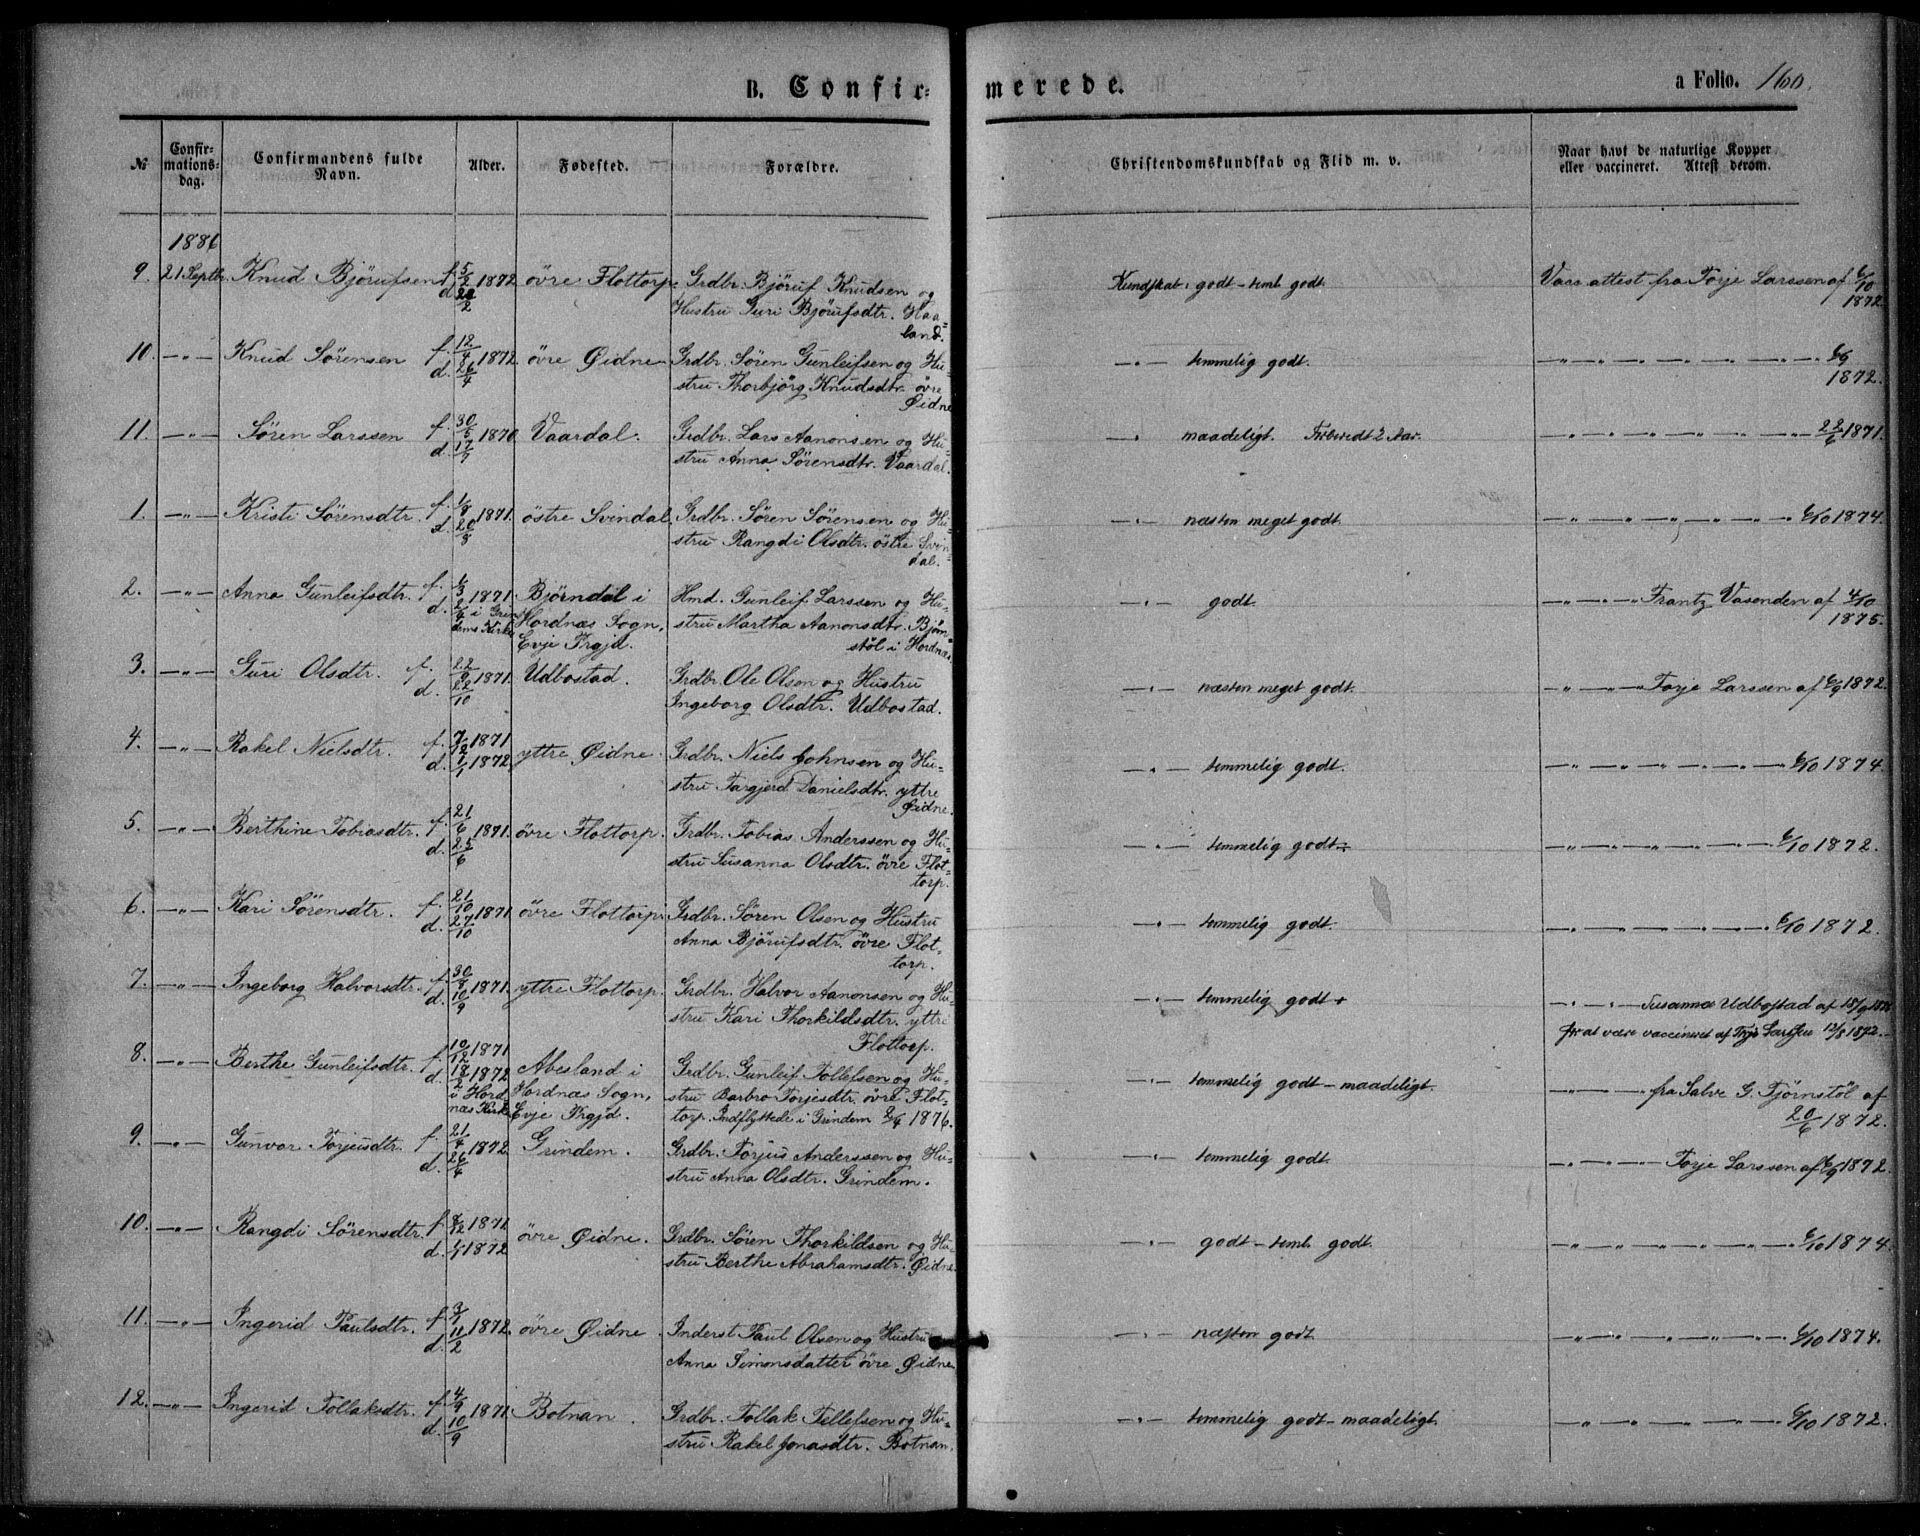 B. Confirmerede. a Folio. 160.
№ Confirmationsdag. Confirmandens fulde Navn. Alder. Fødested. Forældre. Christendomskundskab og Flid m. v. Naar havt de naturlige Kopper eller vaccineret. Attest derom.
1886
9. 21 Septbr. Knud Bjørufsen f. 5/2 1872 øvre Flottorp. Grdbr. Bjøruf Knudsen og Kundskab: godt - teml. godt. Vacc. attest fra Torje Larssen af 6/10 1872.
d. /2 Hustru Guri Bjørufsdtr. Haaland.
10. —„— Knud Sørensen f. 12/4 1872. øvre Øidne. Grdbr. Søren Gunleifsen og Hu- —„— temmelig godt. —„—„—„—„— 6/9 1872.
d. 26/4 stru Thorbjørg Knudsdtr. øvre Øidne
11. —„— Søren Larssen f. 30/5 1870. Vaardal. Grdbr. Lars Aanonsen og Hu- „ maadeligt. Forberedt 2 Aar. —„—„—„—„— 22/6 1871.
d. 17/7 stru Anna Sørensdtr. Vaardal.
1. —„— Kristi Sørensdtr. f. 1/8 1871. østre Svindal. Grdbr. Søren Sørensen og Hu- —„— næsten meget godt. „—„—„—„— 6/10 1874.
d. 20/8 stru Rangdi Olsdtr. østre Svindal.
2. —„— Anna Gunleifsdtr. f. 1871. Bjørndal i Hmd. Gunleif Larssen og Hu- —„— godt. —„—„— Frantz Vasenden af 4/10 1875.
d. i Grindems Kirke Hordnæs Sogn, stru Martha Aanonsdtr. Bjørn-
Evje Prgjd. støl i Hordnæs
3. —„— Guri Olsdtr. f. 22/9 1871. Udbostad. Grdbr. Ole Olsen og Hustru —„— næsten meget godt. „—„— Torje Larssen af 6/9 1872.
d. 22/10 Ingeborg Olsdtr. Udbostad.
4. —„— Rakel Nielsdtr. f. 7/12 1871 yttre Øidne. Grdbr. Niels Johnsen og Hu- —„— temmelig godt. —„—„—„—„— 6/10 1874.
d. 7/1 1872. stru Targjerd Danielsdtr. yttre Øidne.
5. —„— Berthine Tobiasdtr. f. 21/6 1871. øvre Flottorp. Grdbr. Tobias Anderssen og Hu- —„— temmelig godt÷ „—„—„—„— 6/10 1872.
d. 25/6 stru Susanna Olsdtr. øvre Flottorp.
6. —„— Kari Sørensdtr. f. 21/10 1871. øvre Flottorp. Grdbr. Søren Olsen og Hustru —„— temmelig godt. „—„—„—„— 6/10 1872.
d. 27/10 Anna Bjørufsdtr. øvre Flottorp.
7. —„— Ingeborg Halvorsdtr. f. 30/8 1871. yttre Flottorp. Grdbr. Halvor Aanonsen og Hu- —„— temmelig godt + —„—„— Susanna Udbostad af 18/9 1886
d. 10/9 stru Kari Thorkildsdtr. yttre Flottorp. for at være vaccineret af Torje Larssen 12/8 1872.
8. —„— Berthe Gunleifsdtr. f. 10/12 1871 Abesland i Grdbr. Gunleif Tollefsen og Hu- —„— temmelig godt - maadeligt. —„—„— fra Salve G. Tjørnstøl af 20/6 1872.
d. 18/2 1872 i Hordnæs Kirke Hordnæs Sogn, stru Barbro Torjesdtr. øvre Flot-
Evje Prgjd. torp. Indflyttede i Grindem 1876.
9. —„— Gunvor Torjusdtr. f. 21/4 1872. Grindem. Grdbr. Torjus Anderssen og Hu- —„— temmelig godt. —„—„— Torje Larssen af 6/9 1872.
d. 26/4 stru Anna Olsdtr. Grindem.
10. —„— Rangdi Sørensdtr. f. 1871 øvre Øidne. Grdbr. Søren Thorkildsen og Hu- —„— godt - teml. godt. „—„—„—„— 6/10 1874.
d. 1872 stru Berthe Abrahamsdtr. Øidne.
11. —„— Ingerid Paulsdtr. f. 3/1 1872. øvre Øidne. Inderst Paul Olsen og Hustru —„— næsten godt. „—„—„—„— 6/10 1874.
d. 11/2 Anna Simonsdatter øvre Øidne
12. —„— Ingerid Tollaksdtr. f. 4/9 1871. Botnan. Grdbr. Tollak Tellefsen og Hu- —„— temmelig godt - maadeligt. „—„—„—„— 6/10 1872.
d. 10/9 stru Rakel Jonasdtr. Botnan.